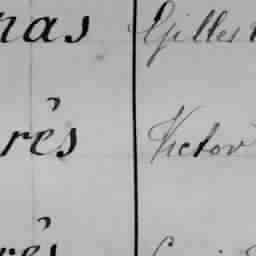 nas Gilles
rês Victor
rês